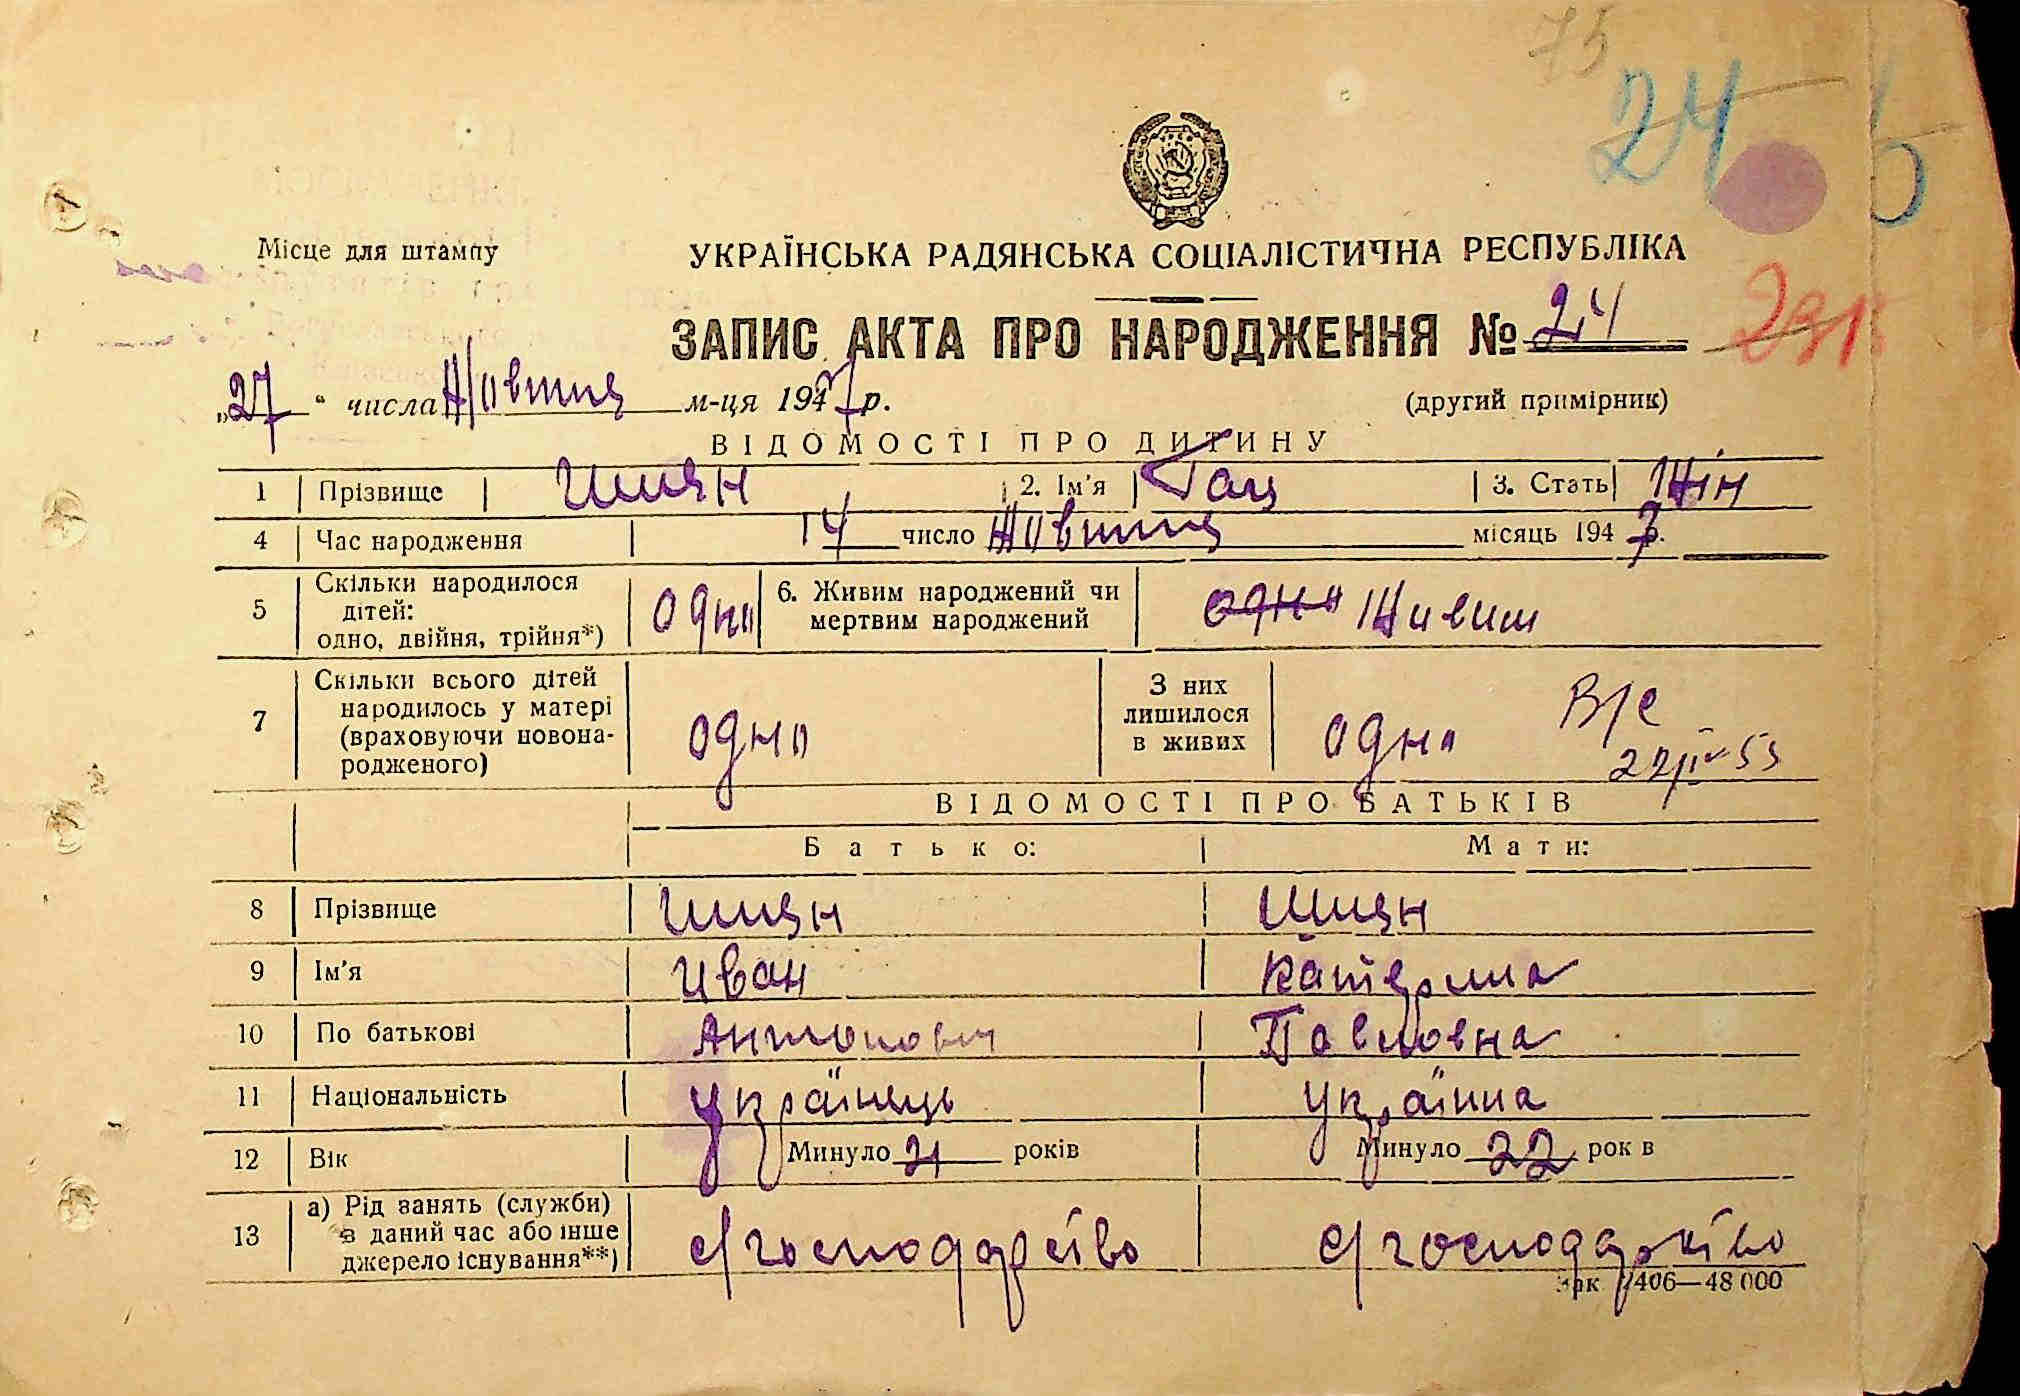 75
24
Місце для штампу
УКРАЇНСЬКА РАДЯНСЬКА СОЦІАЛІСТИЧНА РЕСПУБЛІКА
ЗАПИС АКТА ПРО НАРОДЖЕННЯ № 24
„27“ числа Жовтня м-ця 1947 р.
(другий примірник)
ВІДОМОСТІ ПРО ДИТИНУ
1 Прізвище Шиян 2. Ім'я 3. Стать Жін
4 Час народження 14 число Жовтня місяць 1947 р.
5 Скільки народилося дітей: одно, двійня, трійня*) одно 6. Живим народжений чи мертвим народжений одно Живим
7 Скільки всього дітей народилось у матері (враховуючи новонародженого) одно З них лишилося в живих одно
22/IV 53
ВІДОМОСТІ ПРО БАТЬКІВ
Батько: Мати:
8 Прізвище Шиян Шиян
9 Ім'я Иван Катерина
10 По батькові Антонович Павловна
11 Національність українець українка
12 Вік Минуло 21 років Минуло 22 рок в
13 а) Рід занять (служби) в даний час або інше джерело існування**) с/господарство с/господарство
Зак 7406—48 000